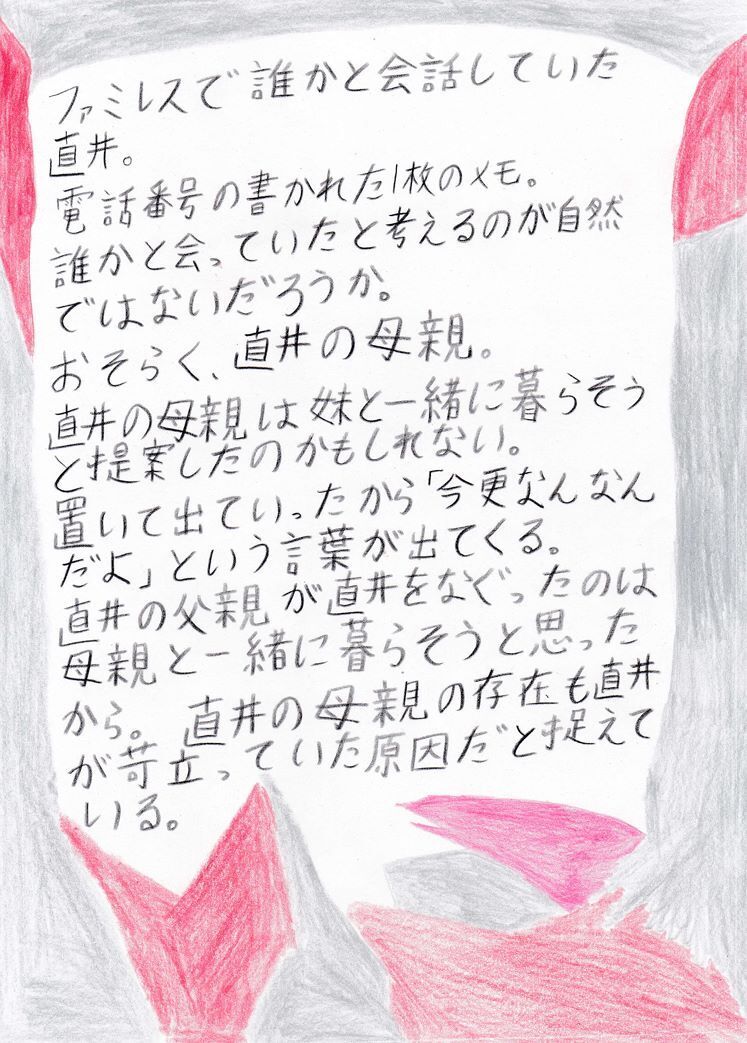 ファミレスで誰かと会話していた
直井。
電話番号の書かれた1枚のメモ。
誰かと会っていたと考えるのが自然
ではないだろうか。
おそらく、直井の母親。
直井の母親は妹と一緒に暮らそう
と提案したのかもしれない。
置いて出ていったから「今更なんなん
だよ」という言葉が出てくる。
直井の父親が直井をなぐったのは
母親と一緒に暮らそうと思った
から。 直井の母親の存在も直井
が苛立っていた原因だと捉えて
いる。